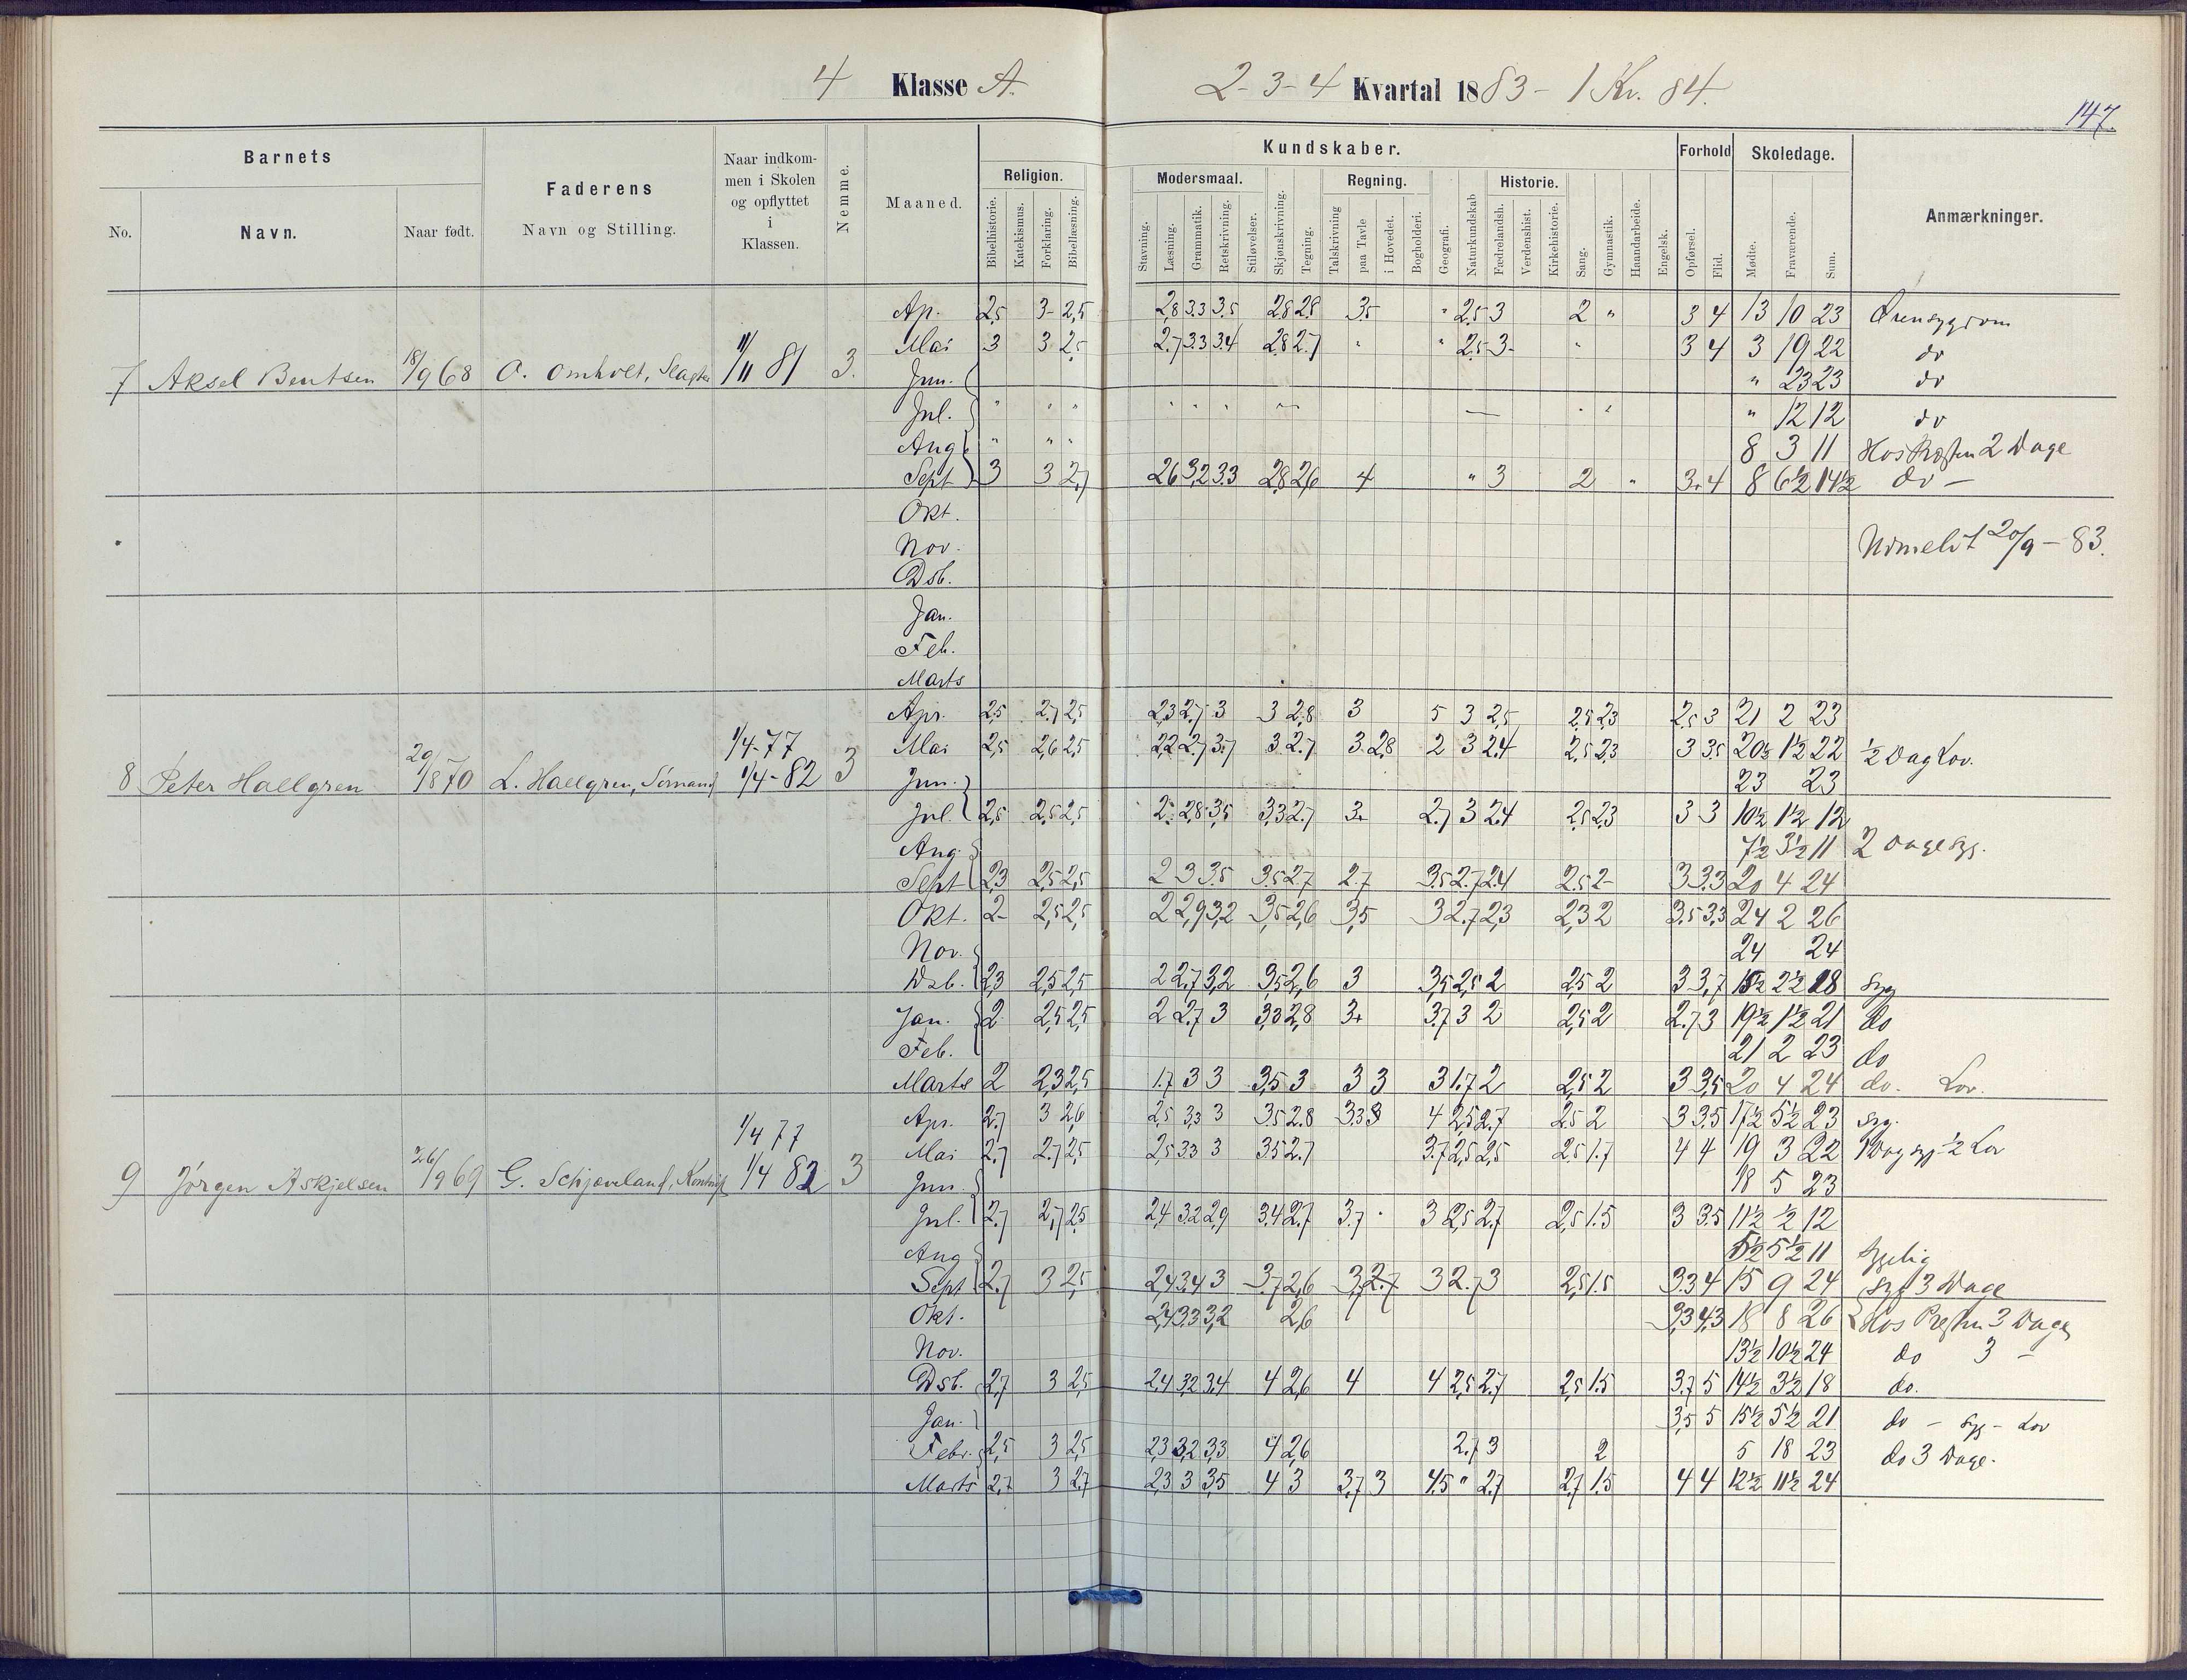 4 Klasse A. 2-3-4 Kvartal 1883 - 1 Kv. 84.
147.
Barnets
No. Navn. Naar født.
Faderens
Navn og Stilling.
Naar indkom-
men i Skolen
og opflyttet
i
Klassen.
Nemme.
Maaned.
Kundskaber.
Religion.
Bibelhistorie. Katekismus. Forklaring. Bibellæsning.
Modersmaal.
Stavning. Læsning. Grammatik. Retskrivning. Stiløvelser.
Skjønskrivning. Tegning.
Regning.
Talskrivning paa Tavle i Hovedet.
Bogholderi. Geografi. Naturkundskab
Historie.
Fædrelandsh. Verdenshist. Kirkehistorie.
Sang. Gymnastik. Haandarbeide. Engelsk.
Forhold
Opførsel. Flid.
Skoledage.
Mødte. Fraværende. Sum.
Anmærkninger.
7 Aksel Bentsen 18/9 68 O. Omholt, 1/11 81 3.
Ap. 2,5 3- 2,5 2,8 3.3 3.5 2.8 2.8 3.5 " 2.5 3 2 " 3 4 13 10 23
Mai 3 3 2,5 2.7 3.3 3.4 2.8 2.7 " " 2.5 3- " 3 4 3 19 22 do
Jun. " 23 23 do
Jul. " 12 12 do
Aug 8 3 11 Hos Præsten 2 Dage
Sept 3 3 2,7 2,6 3,2 3.3 2,8 2,6 4 " 3 2 " 3. 4 8 6½ 14½ do -
Okt.
Nov. Udmeldt 20/9 - 83.
Dsb.
Jan.
Feb.
Marts
8 Peter Hallgren 20/8 70 L. Hallgren, Sømand 1/4-77 1/4-82 3
Apr. 2,5 2.7 2,5 2,3 2.7 3 3 2.8 3 5 3 2,5 2.5 2,3 2.5 3 21 2 23
Mai 2,5 2,6 2,5 2,2 2.7 3.7 3 2.7 3 2,8 2 3 2.4 2.5 2,3 3 3.5 20½ 1½ 22 ½ Dag Lov.
Jun. 23 23
Jul. 2,5 2,5 2,5 2 2,8 3,5 3,3 2.7 3 2.7 3 2.4 2,5 2,3 3 3 10½ 1½ 12
Aug. 7½ 3½ 11 2 Dage syg.
Sept 2,3 2,5 2,5 2 3 3.5 3.5 2.7 2.7 3.5 2.7 2.4 2.5 2- 3 3.3 20 4 24
Okt. 2- 2,5 2,5 2 2,9 3,2 3,5 2,6 3,5 3 2.7 2,3 2,3 2 3.5 3,3 24 2 26
Nov. 24 24
Dsb. 2,3 2,5 2,5 2 2.7 3,2 3,5 2,6 3 3,5 2,5 2 2,5 2 3 3,7 15½ 2½ 18 syg
Jan. 2 2,5 2,5 2 2.7 3 3,3 2,8 3 3.7 3 2 2,5 2 2.7 3 19½ 1½ 21 do
Feb. 21 2 23 do
Marts 2 2,3 2,5 1.7 3 3 3,5 3 3 3 3 1.7 2 2,5 2 3 3,5 20 4 24 do. Lov.
9 Jørgen Askjelsen 26/9 69 G. Schjøveland, 1/4 77 1/4 82 3
Apr. 2.7 3 2,6 2,5 3,3 3 3.5 2.8 3.3 3 4 2,5 2.7 2.5 2 3 3.5 17½ 5½ 23 syg.
Mai 2.7 2.7 2,5 2,5 3.3 3 3.5 2.7 3.7 2,5 2,5 2.5 1.7 4 4 19 3 22 1 Dag syg ½ Lov
Jun. 18 5 23
Jul. 2.7 2,7 2,5 2,4 3.2 2,9 3.4 2.7 3.7 3 2,5 2.7 2,5 1.5 3 3.5 11½ ½ 12
Aug 5½ 5½ 11 Sygelig
Sept 2.7 3 2,5 2,4 3.4 3 3.7 2,6 3,7 3 2.7 3 2,5 1.5 3.3 4 15 9 24 syg 3 Dage
Okt. 2,4 3.3 3,2 2,6 3,3 4,3 18 8 26 Hos Præsten 3 Dage
Nov. 13½ 10½ 24 do 3 -
Dsb. 2,7 3 2,5 2,4 3,2 3,4 4 2,6 4 4 2,5 2.7 2,5 1.5 3.7 5 14½ 3½ 18 do.
Jan. 3,5 5 15½ 5½ 21 do - syg - Lov
Febr. 2,5 3 2,5 2,3 3,2 3,3 4 2,6 2.7 3 2 5 18 23 do 3 Dage.
Marts 2,7 3 2.7 2,3 3 3,5 4 3 3,7 3 4,5 " 2.7 2,7 1.5 4 4 12½ 11½ 24